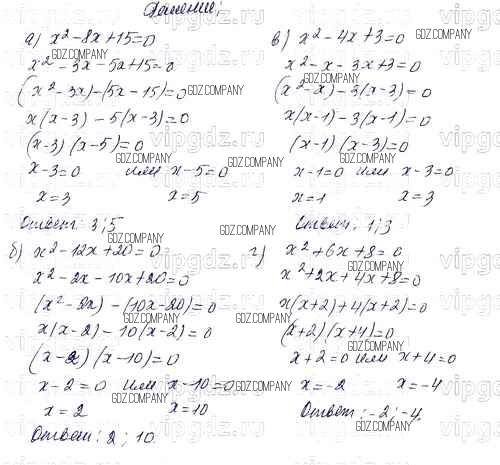 Решение:
а) x² - 8x + 15 = 0
x² - 3x - 5x + 15 = 0
(x² - 3x) - (5x - 15) = 0
x(x - 3) - 5(x - 3) = 0
(x - 3)(x - 5) = 0
x - 3 = 0 или x - 5 = 0
x = 3 x = 5
Ответ: 3; 5
б) x² - 12x + 20 = 0
x² - 2x - 10x + 20 = 0
(x² - 2x) - (10x - 20) = 0
x(x - 2) - 10(x - 2) = 0
(x - 2)(x - 10) = 0
x - 2 = 0 или x - 10 = 0
x = 2 x = 10
Ответ: 2; 10
в) x² - 4x + 3 = 0
x² - x - 3x + 3 = 0
(x² - x) - 3(x - 3) = 0
x(x - 1) - 3(x - 1) = 0
(x - 1)(x - 3) = 0
x - 1 = 0 или x - 3 = 0
x = 1 x = 3
Ответ: 1; 3
г) x² + 6x + 8 = 0
x² + 2x + 4x + 8 = 0
x(x + 2) + 4(x + 2) = 0
(x + 2)(x + 4) = 0
x + 2 = 0 или x + 4 = 0
x = -2 x = -4
Ответ: -2; -4.
GDZ.COMPANY
vipgdz.ru